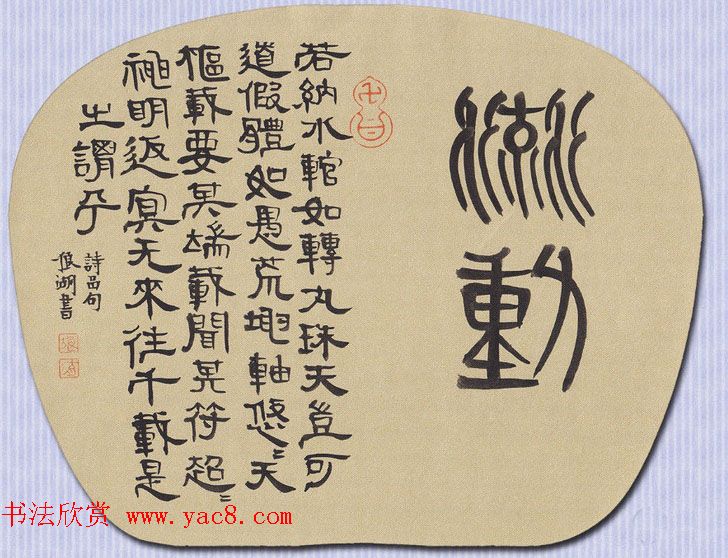 流動
若納水輨如轉丸珠夫豈可
道假體如愚荒坤軸悠〻天
樞載要其端載聞其符超〻
神明返冥无來往千載是
之謂乎
詩品句
湖書
书法欣赏 www.yac8.com